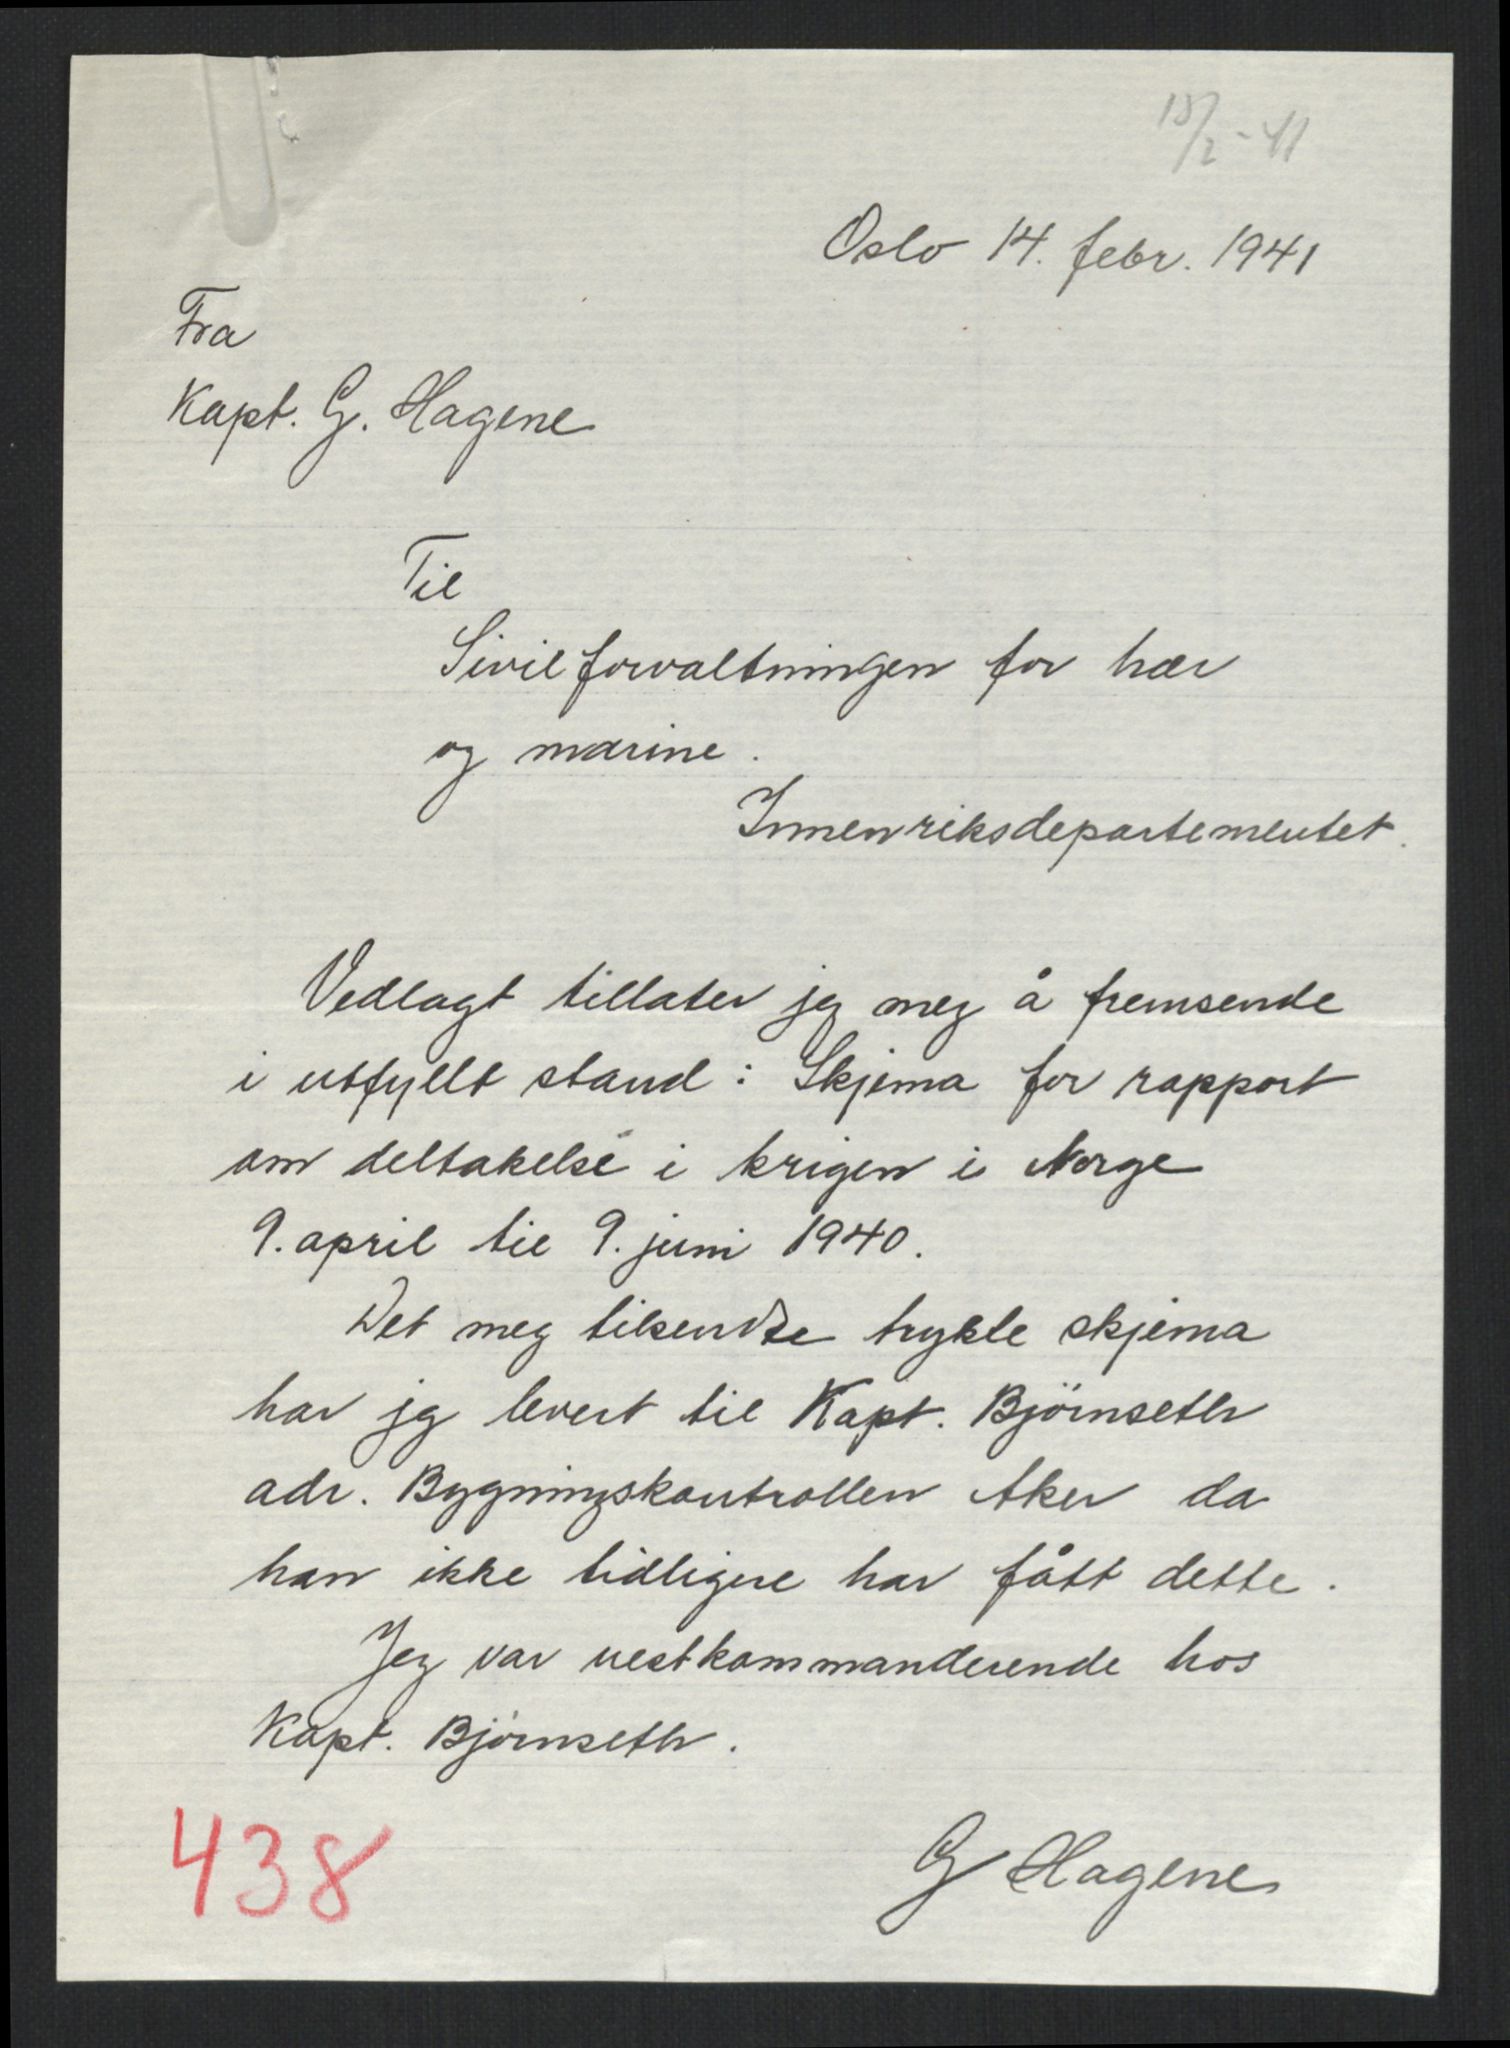 18/2-41
Oslo 14. febr. 1941
Fra
Kapt. G. Hagene
Til
Sivilforvaltningen for hær
og marine.
Innenriksdepartementet.
Vedlagt tillater jeg meg å fremsende
i utfyllt stand: Skjema for rapport
om deltakelse i krigen i Norge
9. april til 9. juni 1940.
Det meg tilsendte trykte skjema
har jeg levert til Kapt. Björnseth
adr. Bygningskontrollen Aker da
han ikke tidligere har fått dette.
Jeg var nestkommanderende hos
Kapt. Björnseth.
G Hagene
438